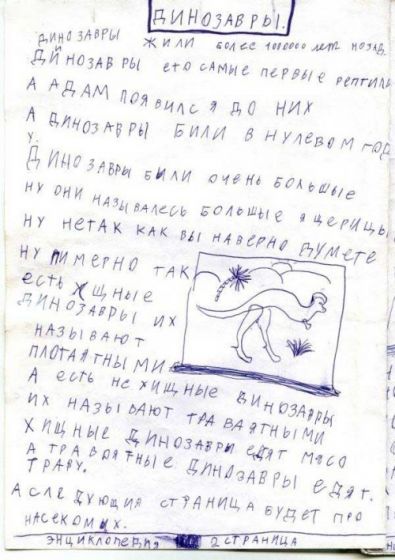 ДИНОЗАВРЫ.
ДИНОЗАВРЫ ЖИЛИ БОЛЕЕ 1000000 ЛЕТ НОЗАД.
ДИНОЗАВРЫ ЕТО САМЫЕ ПЕРВЫЕ РЕПТИЛЬ
А АДАМ ПОЯВИЛСЯ ДО НИХ
А ДИНОЗАВРЫ БИЛИ В НУЛЕВОМ ГОД
У.
ДИНОЗАВРЫ БЫЛИ ОЧЕНЬ БОЛЬШЫЕ
НУ ОНИ НАЗЫВАЛЕСЬ БОЛЬШЫЕ ЯЩЕРИЦЫ
НУ НЕТАК КАК ВЫ НАВЕРНО ДУМЕТЕ
НУ ПИМЕРНО ТАК
ЕСТЬ ХЩНЫЕ
ДИНОЗАВРЫ ИХ
НАЗЫВАЮТ
ПЛОТАЯТНЫМИ
А ЕСТЬ НЕ ХИЩНЫЕ ДИНОЗАВРЫ
ИХ НАЗЫВАЮТ ТРАВАЯТНЫМИ
ХИЩНЫЕ ДИНОЗАВРЫ ЕДЯТ МЯСО
А ТРАВОЯТНЫЕ ДИНОЗАВРЫ ЕДЯТ.
ТРАВУ.
А СЛЕДУЮЩИЯ СТРАНИЦА БУДЕТ ПРО
НАСЕКОМЫХ.
ЭНЦИКЛОПЕДИЯ 2 СТРАНИЦА